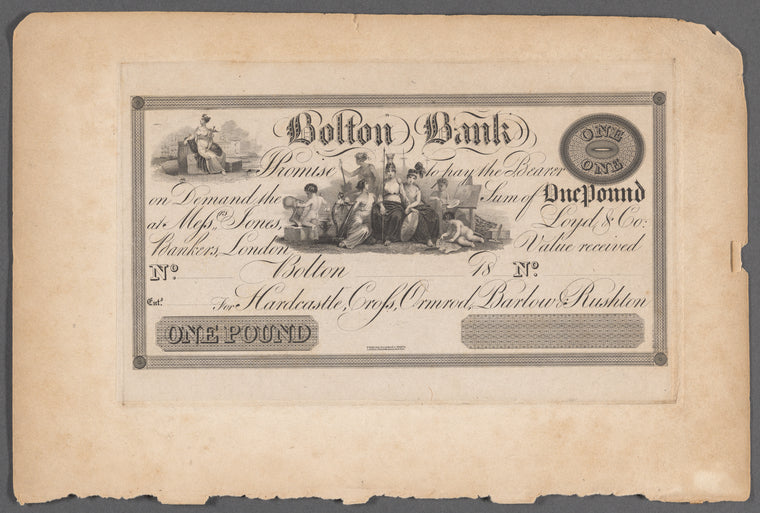 Bolton Bank
ONE
ONE
I Promise to pay the Bearer
on Demand the Sum of One Pound
at Mess.rs Jones, Loyd, & Co:
Bankers, London Value received
No. Bolton 18 No.
Ent.d For Hardcastle, Cross, Ormrod, Barlow & Rushton
ONE POUND